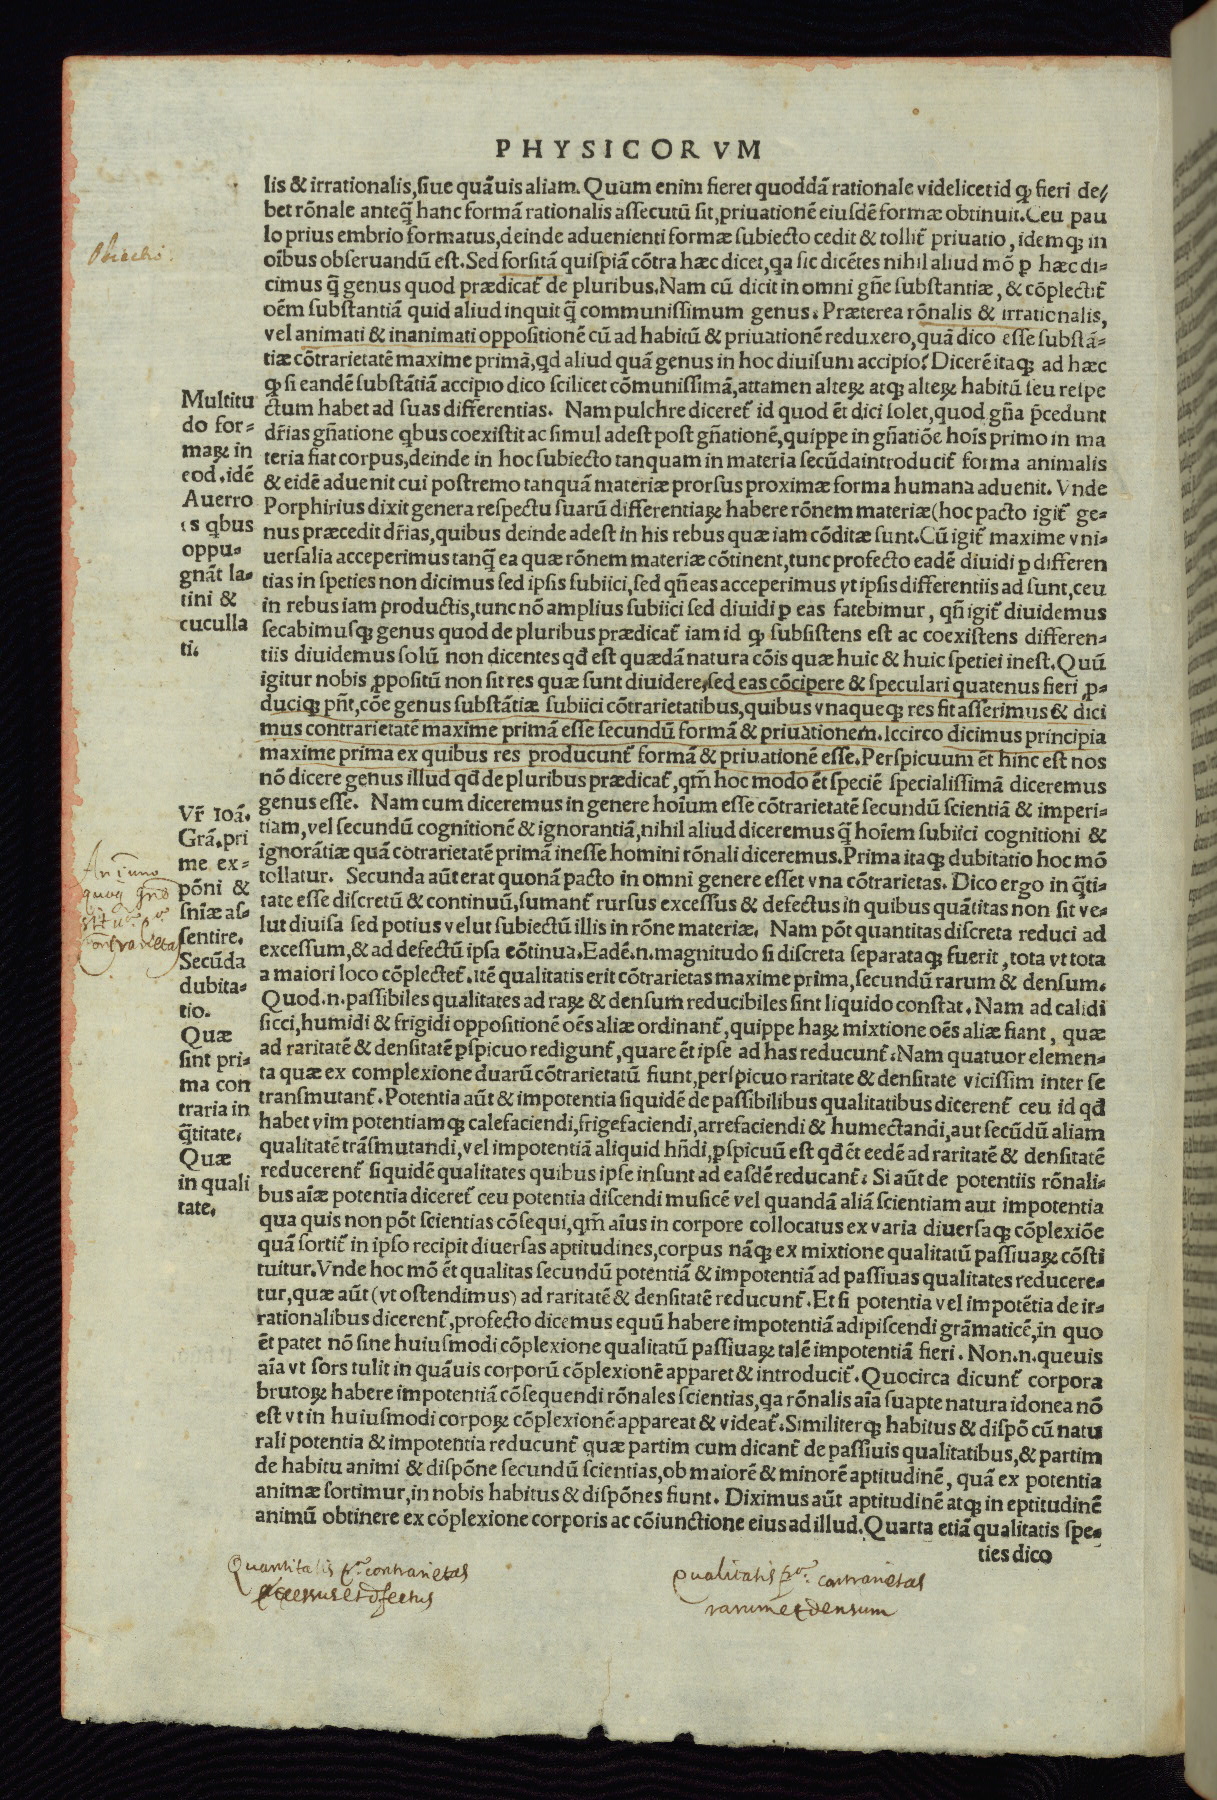 PHYSICORVM
lis & irrationalis, siue quãuis aliam. Quum enim fieret quoddã rationale videlicet id qƺ fieri de//
bet rõnale anteq̃ hanc formã rationalis assecutũ sit, priuationẽ eiusdẽ formæ obtinuit. Ceu pau
lo prius embrio formatus, deinde aduenienti formæ subiecto cedit & tollit̃ priuatio, idemqƺ in
oĩbus obseruandũ est. Sed forsitã quispiã cõtra hæc dicet, qa sic dicẽtes nihil aliud mõ ꝑ hæc di-
cimus q̃ genus quod prædicat̃ de pluribus. Nam cũ dicit in omni gñe substantiæ, & cõplectit̃
oẽm substantiã quid aliud inquit q̃ communissimum genus. Præterea rõnalis & irrationalis,
vel animati & inanimati oppositionẽ cũ ad habitũ & priuationẽ reduxero, quã dico esse substã-
tiæ cõtrarietatẽ maxime primã, qd aliud quã genus in hoc diuisum accipio? Dicerẽ itaqƺ ad hæc
qƺ si eandẽ substãtiã accipio dico scilicet cõmunissimã, attamen alteꝝ atqƺ alteꝝ habitũ seu respe
ctum habet ad suas differentias. Nam pulchre diceret̃ id quod ẽt dici solet, quod gña p̃cedunt
dr̃ias gñatione qbus coexistit ac simul adest post gñationẽ, quippe in gñatiõe hoĩs primo in ma
teria fiat corpus, deinde in hoc subiecto tanquam in materia secũdaintroducit̃ forma animalis
& eidẽ aduenit cui postremo tanquã materiæ prorsus proximæ forma humana aduenit. Vnde
Porphirius dixit genera respectu suarũ differentiaꝝ habere rõnem materiæ (hoc pacto igit̃ ge-
nus præcedit dr̃ias, quibus deinde adest in his rebus quæ iam cõditæ sunt. Cũ igit̃ maxime vni-
uersalia acceperimus tanq̃ ea quæ rõnem materiæ cõtinent, tunc profecto eadẽ diuidi ꝑ differen
tias in speties non dicimus sed ipsis subiici, sed qñ eas acceperimus vt ipsis differentiis ad sunt, ceu
in rebus iam productis, tunc nõ amplius subiici sed diuidi ꝑ eas fatebimur, qñ igit̃ diuidemus
secabimusqƺ genus quod de pluribus prædicat̃ iam id qƺ subsistens est ac coexistens differen-
tiis diuidemus solũ non dicentes qđ est quædã natura cõis quæ huic & huic spetiei inest. Quũ
igitur nobis ꝓpositũ non sit res quæ sunt diuidere, sed eas cõcipere & speculari quatenus fieri ꝓ-
duciqƺ pñt, cõe genus substãtiæ subiici cõtrarietatibus, quibus vnaquæqƺ res fit asserimus & dici
mus contrarietatẽ maxime primã esse secundũ formã & priuationem. Iccirco dicimus principia
maxime prima ex quibus res producunt̃ formã & priuationẽ esse. Perspicuum ẽt hinc est nos
nõ dicere genus illud qđ de pluribus prædicat̃, qm̃ hoc modo ẽt speciẽ specialissimã diceremus
genus esse. Nam cum diceremus in genere hoĩum esse cõtrarietatẽ secundũ scientiã & imperi-
tiam, vel secundũ cognitionẽ & ignorantiã, nihil aliud diceremus q̃ hoĩem subiici cognitioni &
ignorãtiæ quã cõtrarietatẽ primã inesse homini rõnali diceremus. Prima itaqƺ dubitatio hoc mõ
tollatur. Secunda aũt erat quonã pacto in omni genere esset vna cõtrarietas. Dico ergo in q̃ti-
tate esse discretũ & continuũ, sumant̃ rursus excessus & defectus in quibus quãtitas non sit ve-
lut diuisa sed potius velut subiectũ illis in rõne materiæ. Nam põt quantitas discreta reduci ad
excessum, & ad defectũ ipsa cõtinua. Eadẽ.n. magnitudo si discreta separataqƺ fuerit, tota vt tota
a maiori loco cõplectet̃. itẽ qualitatis erit cõtrarietas maxime prima, secundũ rarum & densum.
Quod.n. passibiles qualitates ad raꝝ & densum reducibiles sint liquido constat. Nam ad calidi
sicci, humidi & frigidi oppositionẽ oẽs aliæ ordinant̃, quippe haꝝ mixtione oẽs aliæ fiant, quæ
ad raritatẽ & densitatẽ ꝑspicuo redigunt̃, quare ẽt ipse ad has reducunt̃. Nam quatuor elemen-
ta quæ ex complexione duarũ cõtrarietatũ fiunt, perspicuo raritate & densitate vicissim inter se
transmutant̃. Potentia aũt & impotentia siquidẽ de passibilibus qualitatibus dicerent̃ ceu id qđ
habet vim potentiamqƺ calefaciendi, frigefaciendi, arrefaciendi & humectandi, aut secũdũ aliam
qualitatẽ trãsmutandi, vel impotentiã aliquid hñdi, ꝑspicuũ est qđ ẽt eedẽ ad raritatẽ & densitatẽ
reducerent̃ siquidẽ qualitates quibus ipse insunt ad easdẽ reducant̃. Si aũt de potentiis rõnali-
bus aĩæ potentia diceret̃ ceu potentia discendi musicẽ vel quandã aliã scientiam aut impotentia
qua quis non põt scientias cõsequi, qm̃ aĩus in corpore collocatus ex varia diuersaqƺ cõplexiõe
quã sortit̃ in ipso recipit diuersas aptitudines, corpus nãqƺ ex mixtione qualitatũ passiuaꝝ cõsti
tuitur. Vnde hoc mõ ẽt qualitas secundũ potentiã & impotentiã ad passiuas qualitates reducere-
tur, quæ aũt (vt ostendimus) ad raritatẽ & densitatẽ reducunt̃. Et si potentia vel impotẽtia de ir-
rationalibus dicerent̃, profecto dicemus equũ habere impotentiã adipiscendi grãmaticẽ, in quo
ẽt patet nõ sine huiusmodi cõplexione qualitatũ passiuaꝝ talẽ impotentiã fieri. Non.n. queuis
aĩa vt sors tulit in quãuis corporũ cõplexionẽ apparet & introducit̃. Quocirca dicunt̃ corpora
brutoꝝ habere impotentiã cõsequendi rõnales scientias, qa rõnalis aĩa suapte natura idonea nõ
est vt in huiusmodi corpoꝝ cõplexionẽ appareat & videat̃. Similiterqƺ habitus & dispõ cũ natu
rali potentia & impotentia reducunt̃ quæ partim cum dicant̃ de passiuis qualitatibus, & partim
de habitu animi & dispõne secundũ scientias, ob maiorẽ & minorẽ aptitudinẽ, quã ex potentia
animæ sortimur, in nobis habitus & dispõnes fiunt. Diximus aũt aptitudinẽ atqƺ in eptitudinẽ
animũ obtinere ex cõplexione corporis ac cõiunctione eius ad illud. Quarta etiã qualitatis spe-
ties dico
Multitu
do for-
maꝝ in
eod. idẽ
Auerro
is qbus
oppu-
gnãt la-
tini &
cuculla
ti.
Vr̃ Ioã.
Grã. pri
me ex-
põni &
sñiæ as-
sentire.
Secũda
dubita-
tio.
Quæ
sint pri-
ma con
traria in
q̃titate.
Quæ
in quali
tate.
Obiectio.
An in uno
quoq gñe
sit
contrarietas
Quantitatis pª contrarietas
excessus et defectus
qualitatis pª: contrarietas
rarum et densum